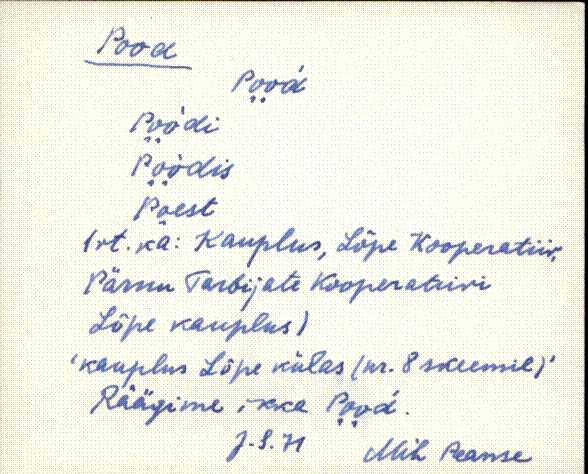 Pood
Pood
Poodi
Poodis
Poest
(rt. ka: Kauplus, Lõpe Kooperatiiv,
Pärnu Tarbijate Kooperatiivi
Lõpe kauplus)
'kauplus Lõpe külas (nr. 8 skeemil)'
Räägime ikka Pood.
71 Mih